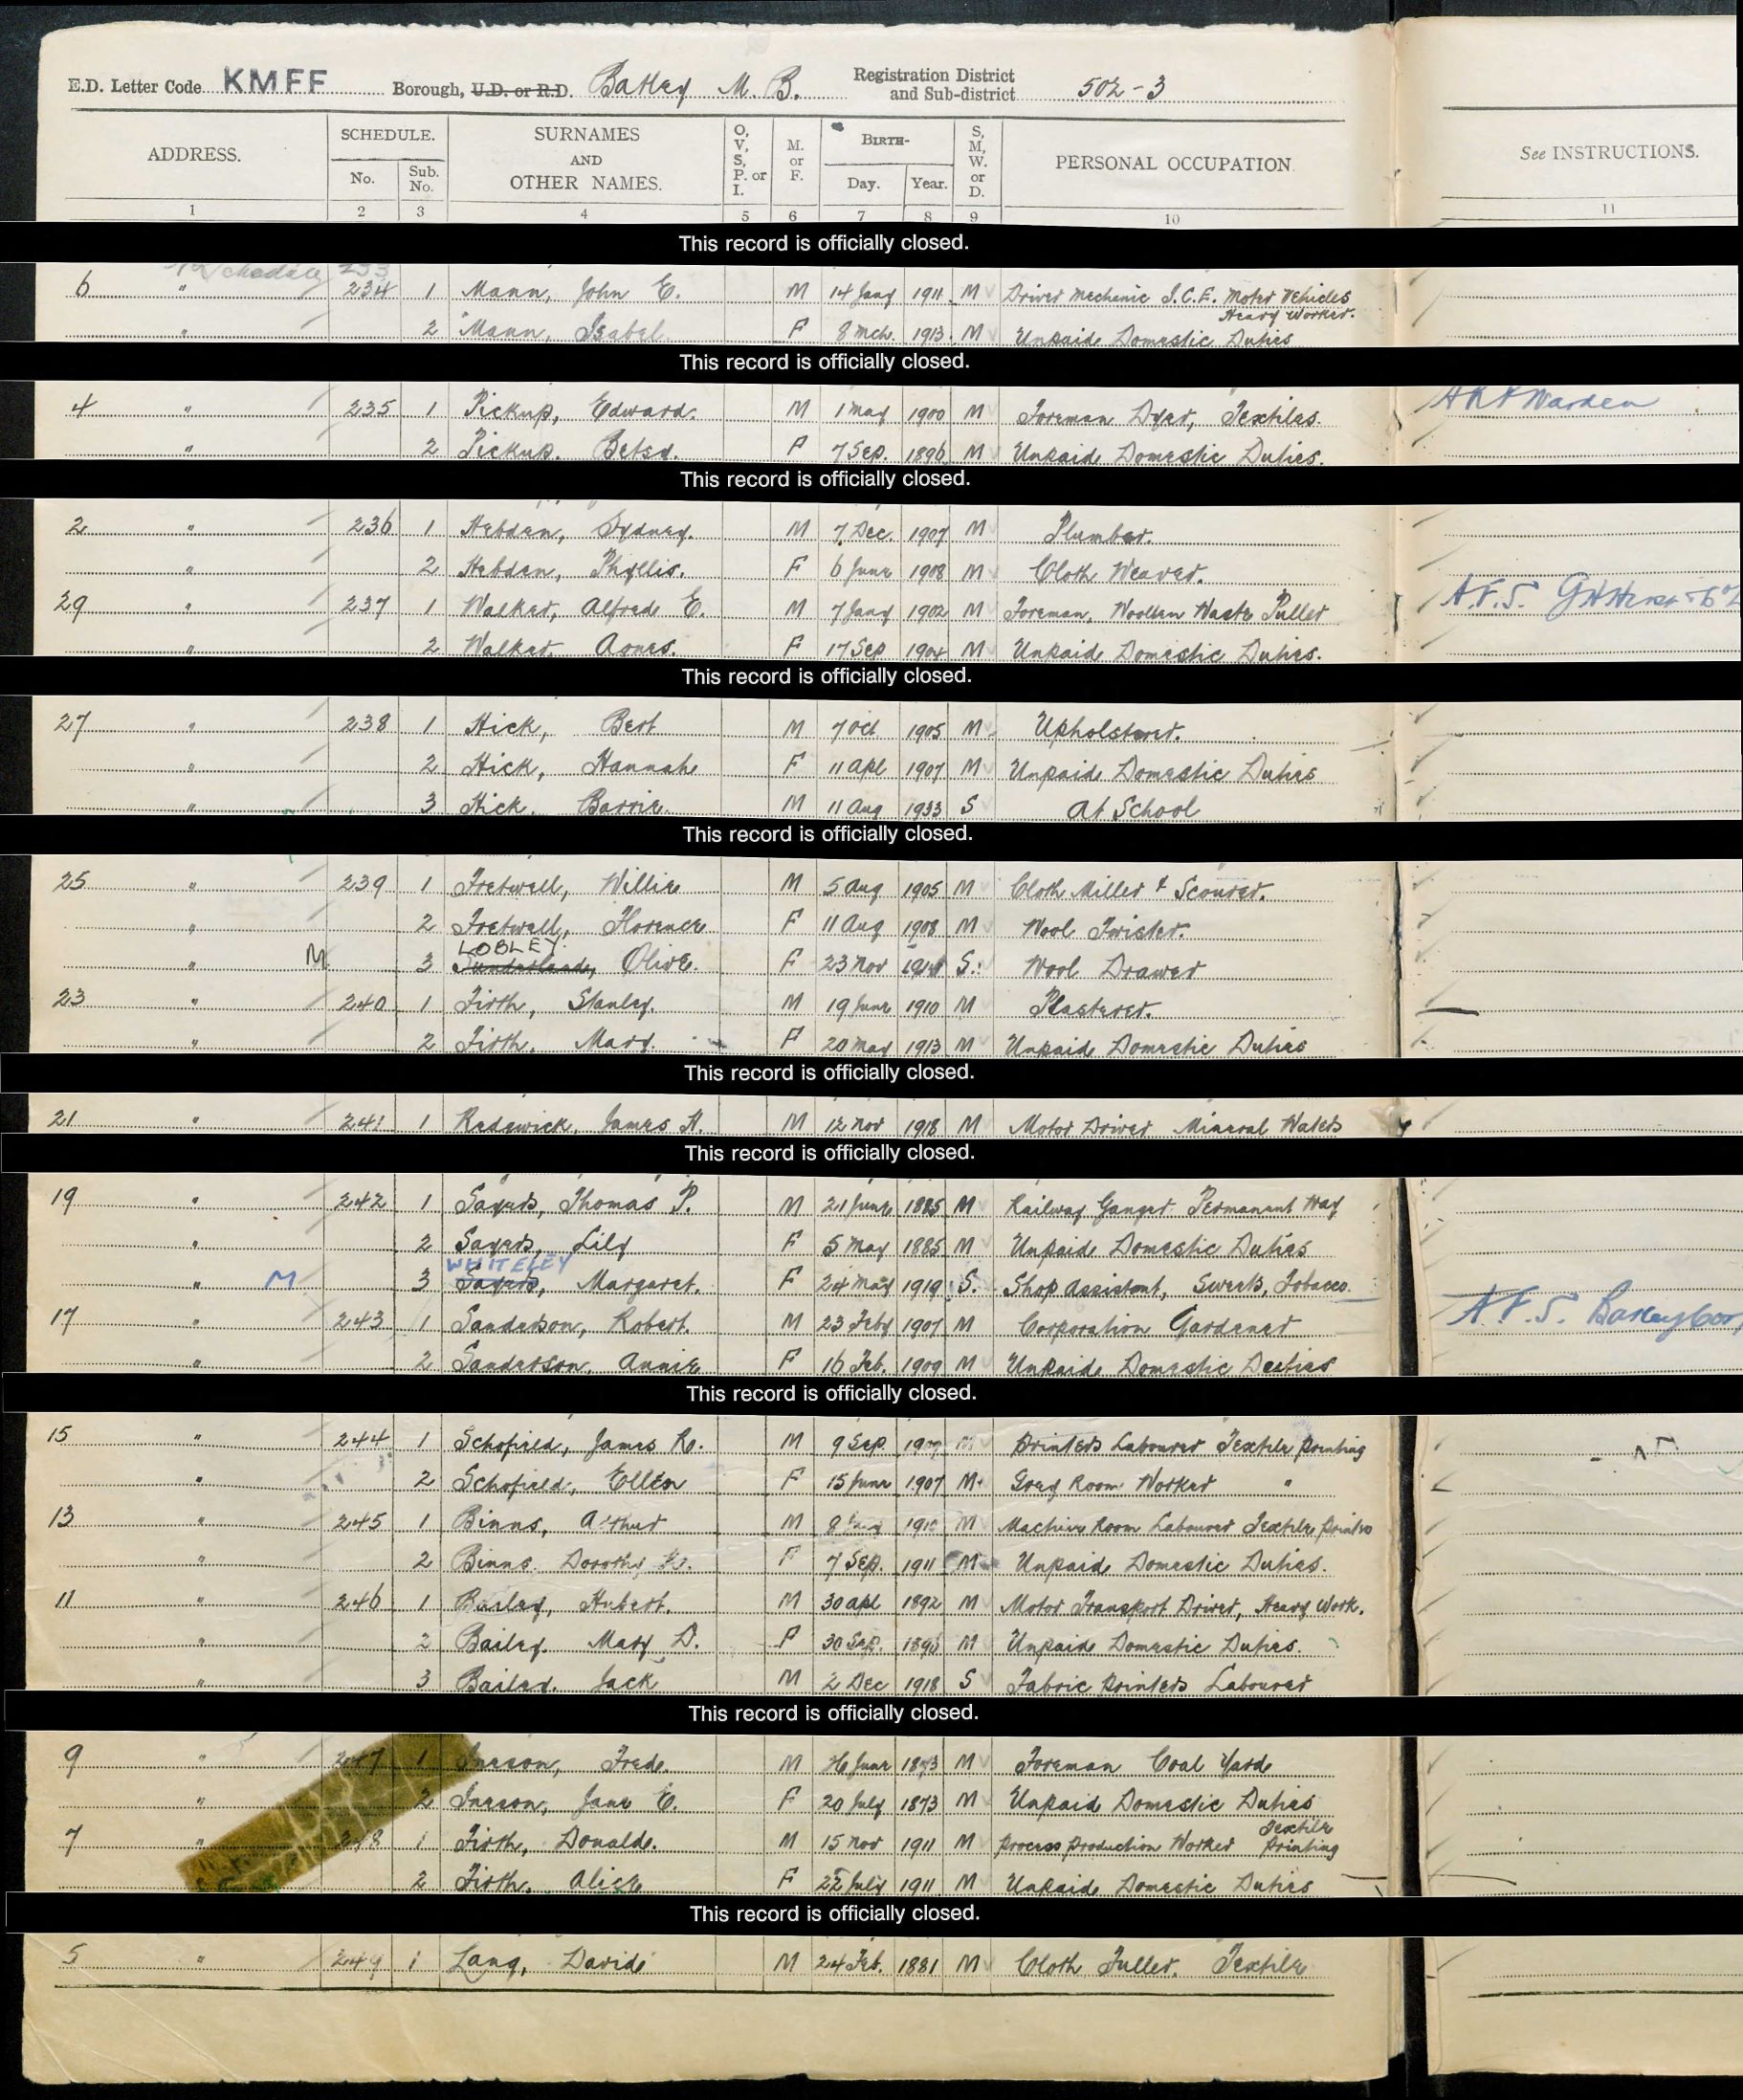 E.D. Letter Code KMFF Borough, U.D. or R.D. Batley M. B. Registration District and Sub-district 502-3
ADDRESS. SCHEDULE. No. Sub. No. SURNAMES AND OTHER NAMES. O, V, S, P. or I. M. or F. BIRTH- Day. Year. S, M, W. or D. PERSONAL OCCUPATION. See INSTRUCTIONS.
1 2 3 4 5 6 7 8 9 10 11
This record is officially closed.
Schedule 233
6 " 234 1 Mann, John E. M 14 Jany 1911 M Driver Mechanic I.C.E. Motor Vehicles
Heavy Worker.
" 2 Mann, Isabel F 8 Mch. 1913 M Unpaid Domestic Duties
This record is officially closed.
4 " 235 1 Pickup, Edward. M 1 May 1900 M Foreman Dyer, Textiles. Warden
" 2 Pickup. Betsy. F 7 Sep. 1896 M Unpaid Domestic Duties.
This record is officially closed.
2 " 236 1 Hebden, Sydney. M 7 Dec. 1907 M Plumber.
" 2 Hebden, Phyllis. F 6 June 1908 M Cloth Weaver.
29 " 237 1 Walker, Alfred E. M 7 Jany 1902 M Foreman, Woollen Waste Puller A.F.S.
" 2 Walker, Agnes. F 17 Sep 1904 M Unpaid Domestic Duties.
This record is officially closed.
27 " 238 1 Hick, Bert M 7 Oct 1905 M Upholsterer.
" 2 Hick, Hannah F 11 Apl 1907 M Unpaid Domestic Duties
" 3 Hick. Barrie. M 11 Aug 1933 S At School
This record is officially closed.
25 " 239 1 Fretwell, Willie M 5 Aug 1905 M Cloth Miller & Scourer.
" 2 Fretwell, Florence F 11 Aug 1908 M Wool Twister.
LOBLEY.
" M 3 Sunderland, Olive. F 23 Nov S. Wool Drawer
23 " 240 1 Firth, Stanley. M 19 June 1910 M Plasterer.
" 2 Firth, Mary. F 20 May 1913 M Unpaid Domestic Duties
This record is officially closed.
21 " 241 1 Redgwick, James H. M 12 Nov 1918 M Motor Driver Mineral Waters
This record is officially closed.
19 " 242 1 Sayers, Thomas P. M 21 June 1885 M Railway Ganger Permanent Way
" 2 Sayers, Lily F 5 May 1885 M Unpaid Domestic Duties
WHITELEY
" M 3 Sayers, Margaret. F 24 May 1919 S. Shop Assistant, Sweets, Tobacco.
17 " 243 1 Sanderson, Robert. M 23 Feby 1907 M Corporation Gardener A.F.S. Batley
" 2 Sanderson, Annie F 16 Feb. 1909 M Unpaid Domestic Duties
This record is officially closed.
15 " 244 1 Schofield, James R. M 9 Sep. M Printers Labourer Textile Printing
" 2 Schofield, Ellen F 15 June 1907 M Grey Room Worker "
13 " 245 1 Binns, Arthur M 8 M Machine Room Labourer Textile Printers
" 2 Binns. Dorothy F 7 Sep. 1911 M Unpaid Domestic Duties.
11 " 246 1 Bailey, Hubert. M 30 Apl 1892 M Motor Transport Driver, Heavy Work.
" 2 Bailey. Mary D. F 30 Sep. M Unpaid Domestic Duties.
" 3 Bailey. Jack M 2 Dec 1918 S Fabric Printers Labourer
This record is officially closed.
9 " 247 1 Ineson, Fred. M 26 June 1873 M Foreman Coal Yard
" 2 Ineson, Jane E. F 20 July 1873 M Unpaid Domestic Duties
7 " 248 1 Firth, Donald. M 15 Nov 1911 M Process Production Worker Textile Printing
" 2 Firth, Alice F 22 July 1911 M Unpaid Domestic Duties
This record is officially closed.
5 " 249 1 Lang, David M 24 Feb. 1881 M Cloth Fuller. Textile